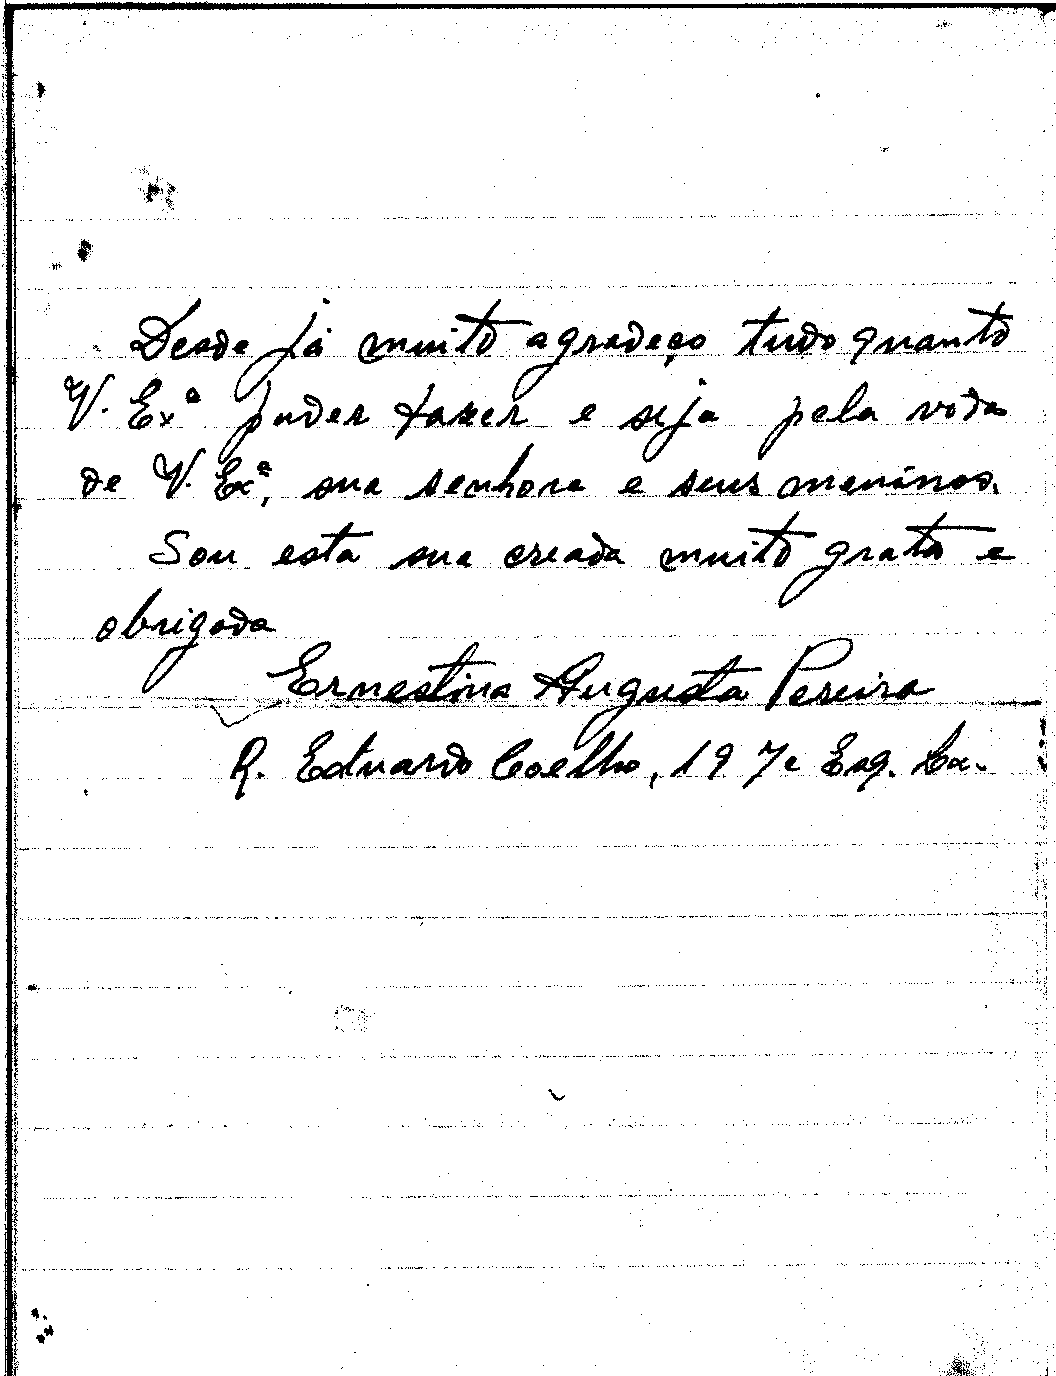 Desde já muito agradeço tudo quanto
V. Exª puder fazer e seja pela vida
de V. Exª, sua senhora e seus meninos.
Sou esta sua creada muito grata e
obrigada
Ernestina Augusta Pereira
R. Eduardo Coelho, 19 Esq. Lx.